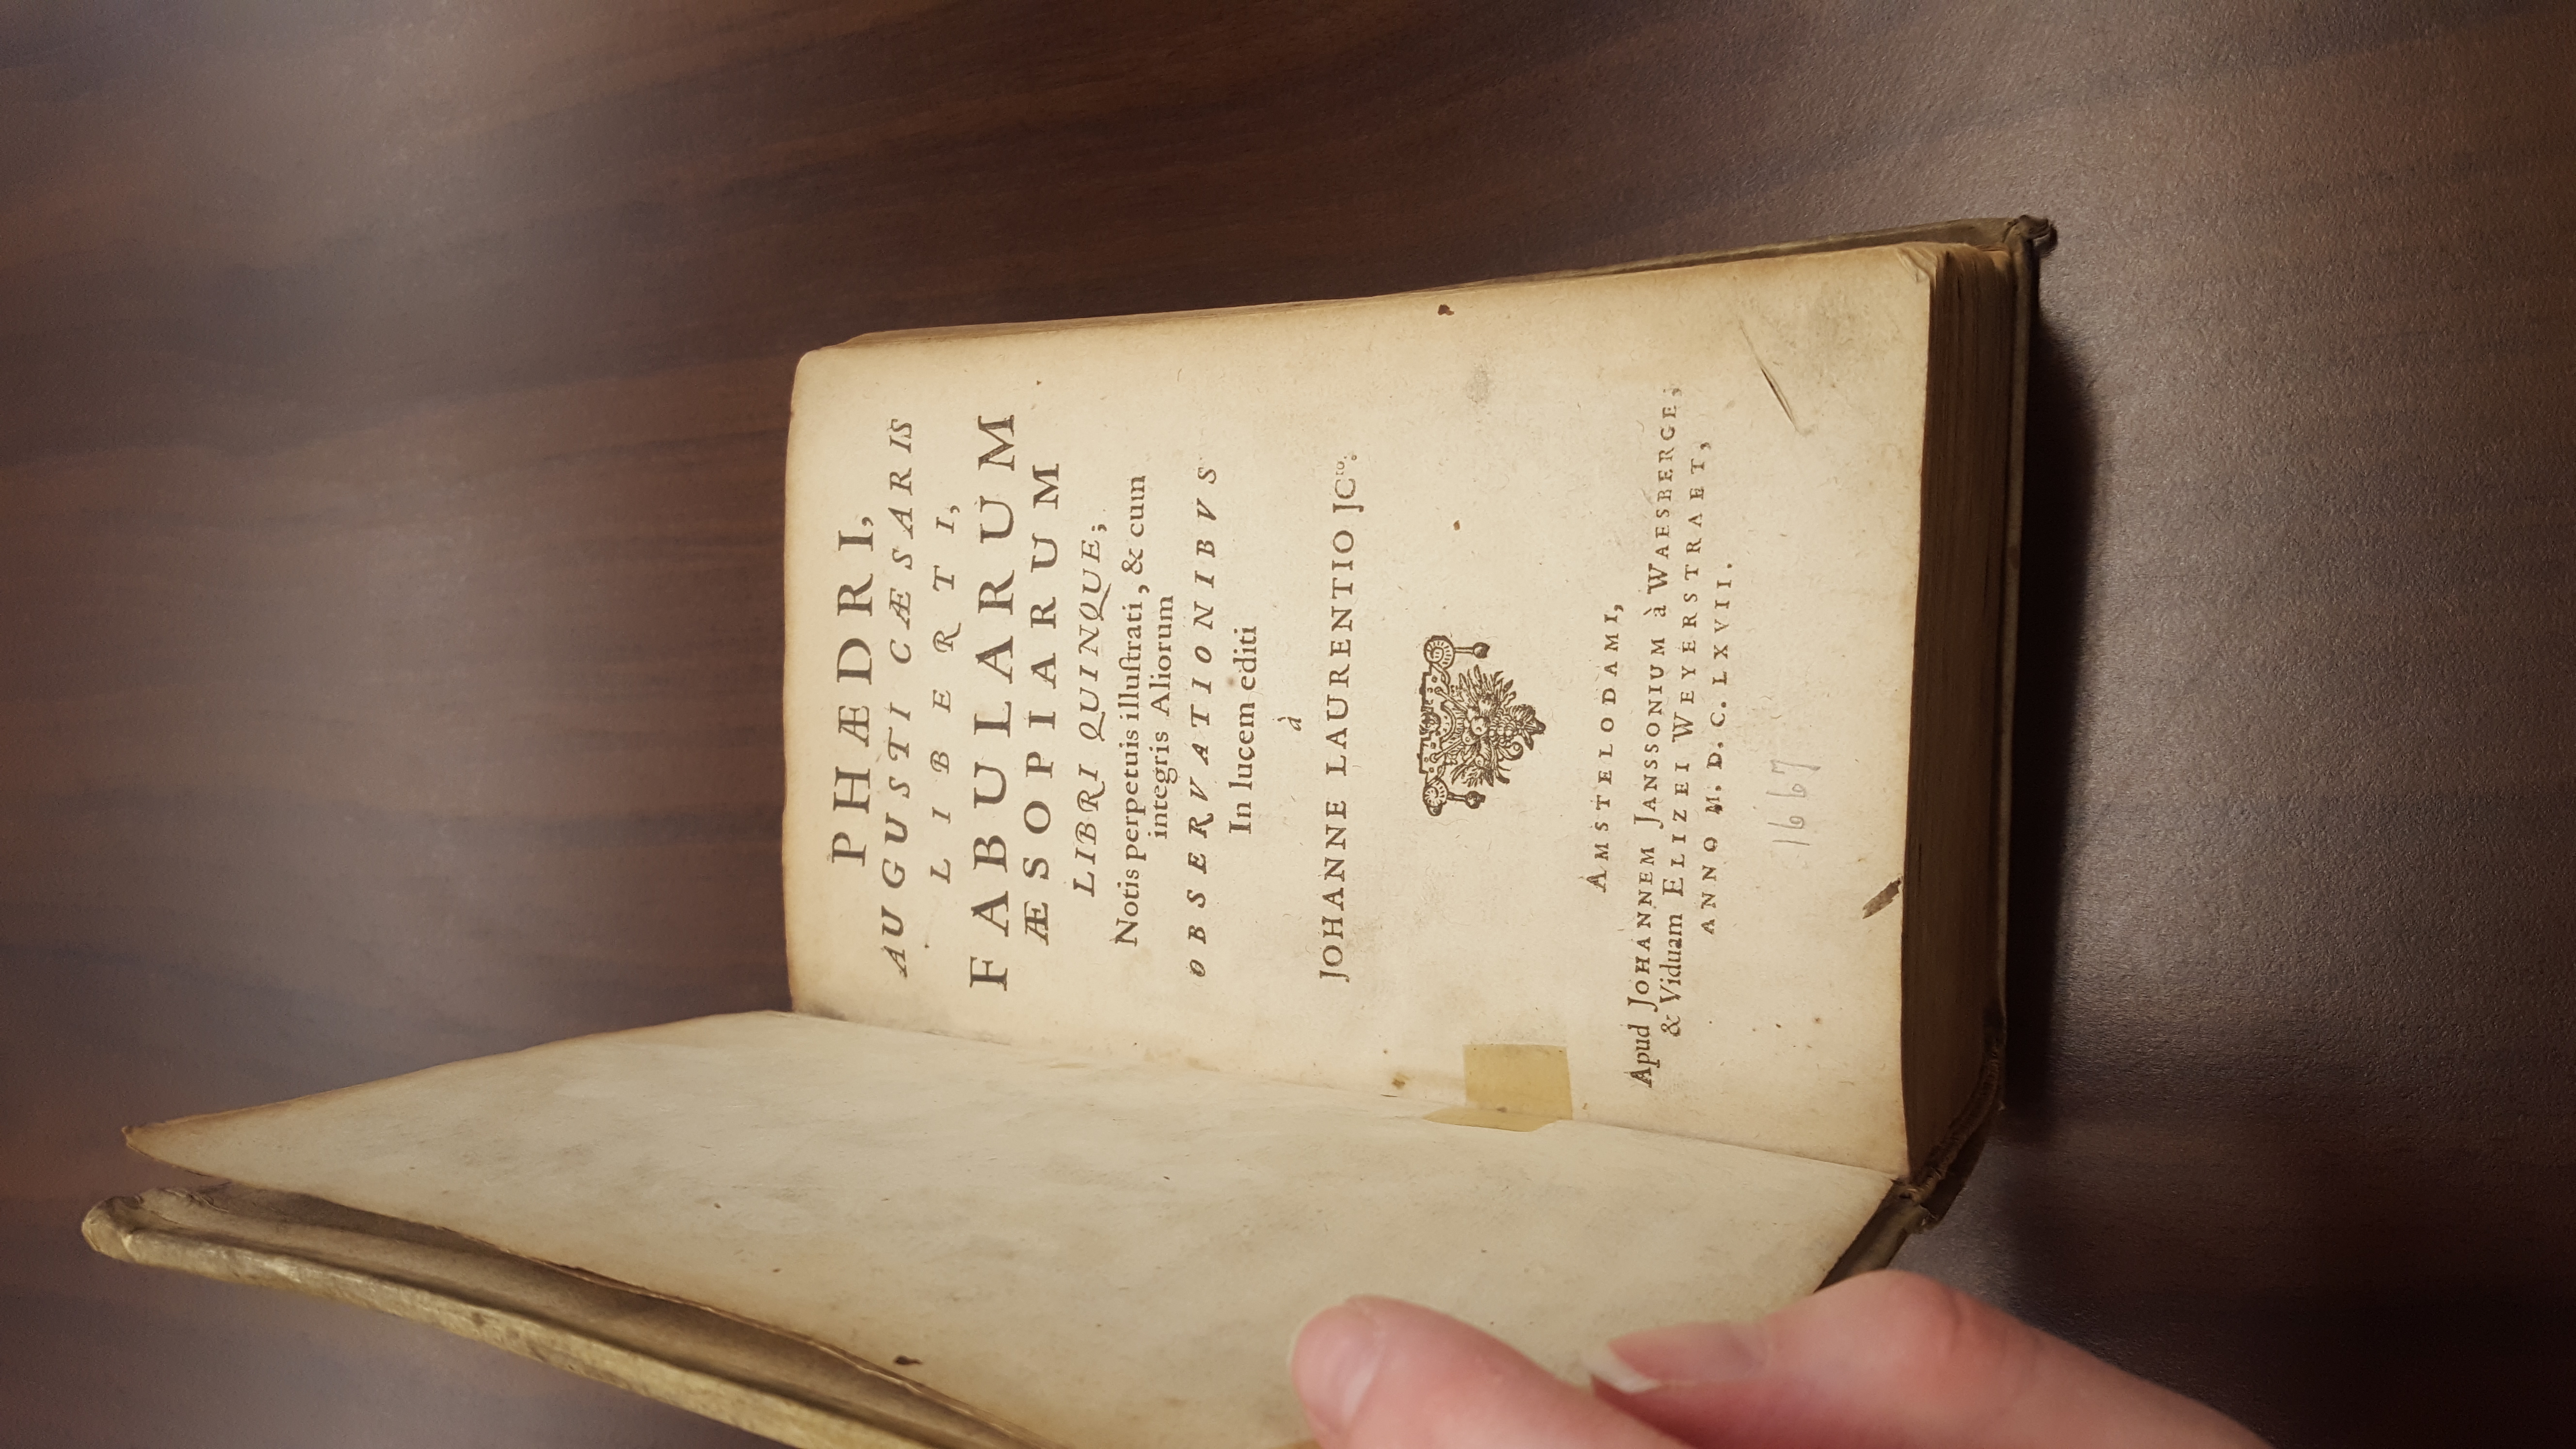 PHÆDRI,
AUGUSTI CÆSARIS
LIBERTI,
FABULARUM
ÆSOPIARUM
LIBRI QUINQUE;
Notis perpetuis illuſtrati, & cum
integris Aliorum
OBSERVATIONIBVS
In lucem editi
à
JOHANNE LAURENTIO JCto.
AMSTELODAMI,
Apud JOHANNEM JANSSONIUM à WAESBERGE,
& Viduam ELIZEI WEYERSTRAET,
ANNO M. D. C. LXVII.
1667